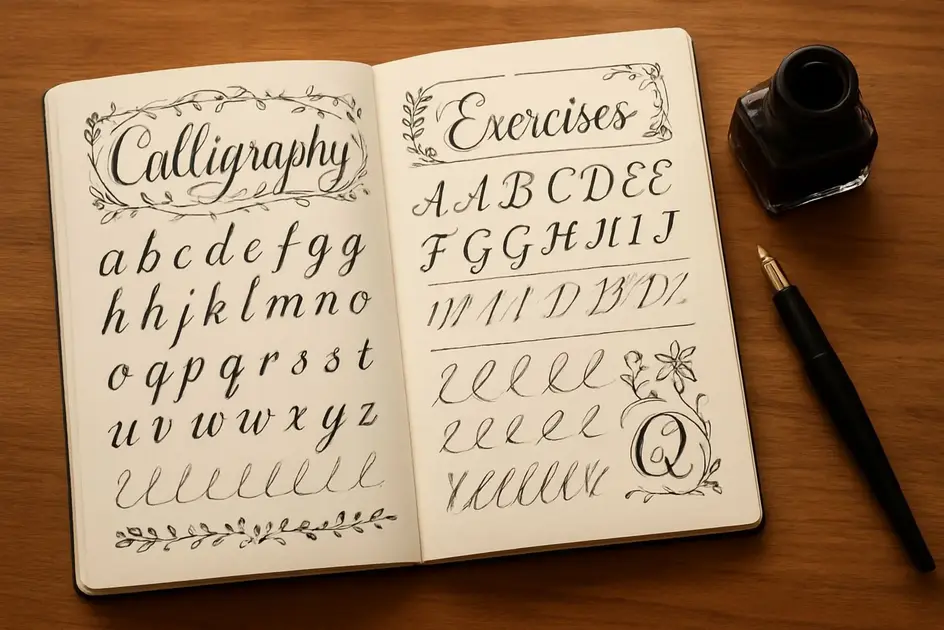 Calligraphy
a b c d e f g g
h h j k l m n o
o q p q r s s t
u v w w x y z
Exercises
A A B C D E E
F G G H I J
Q